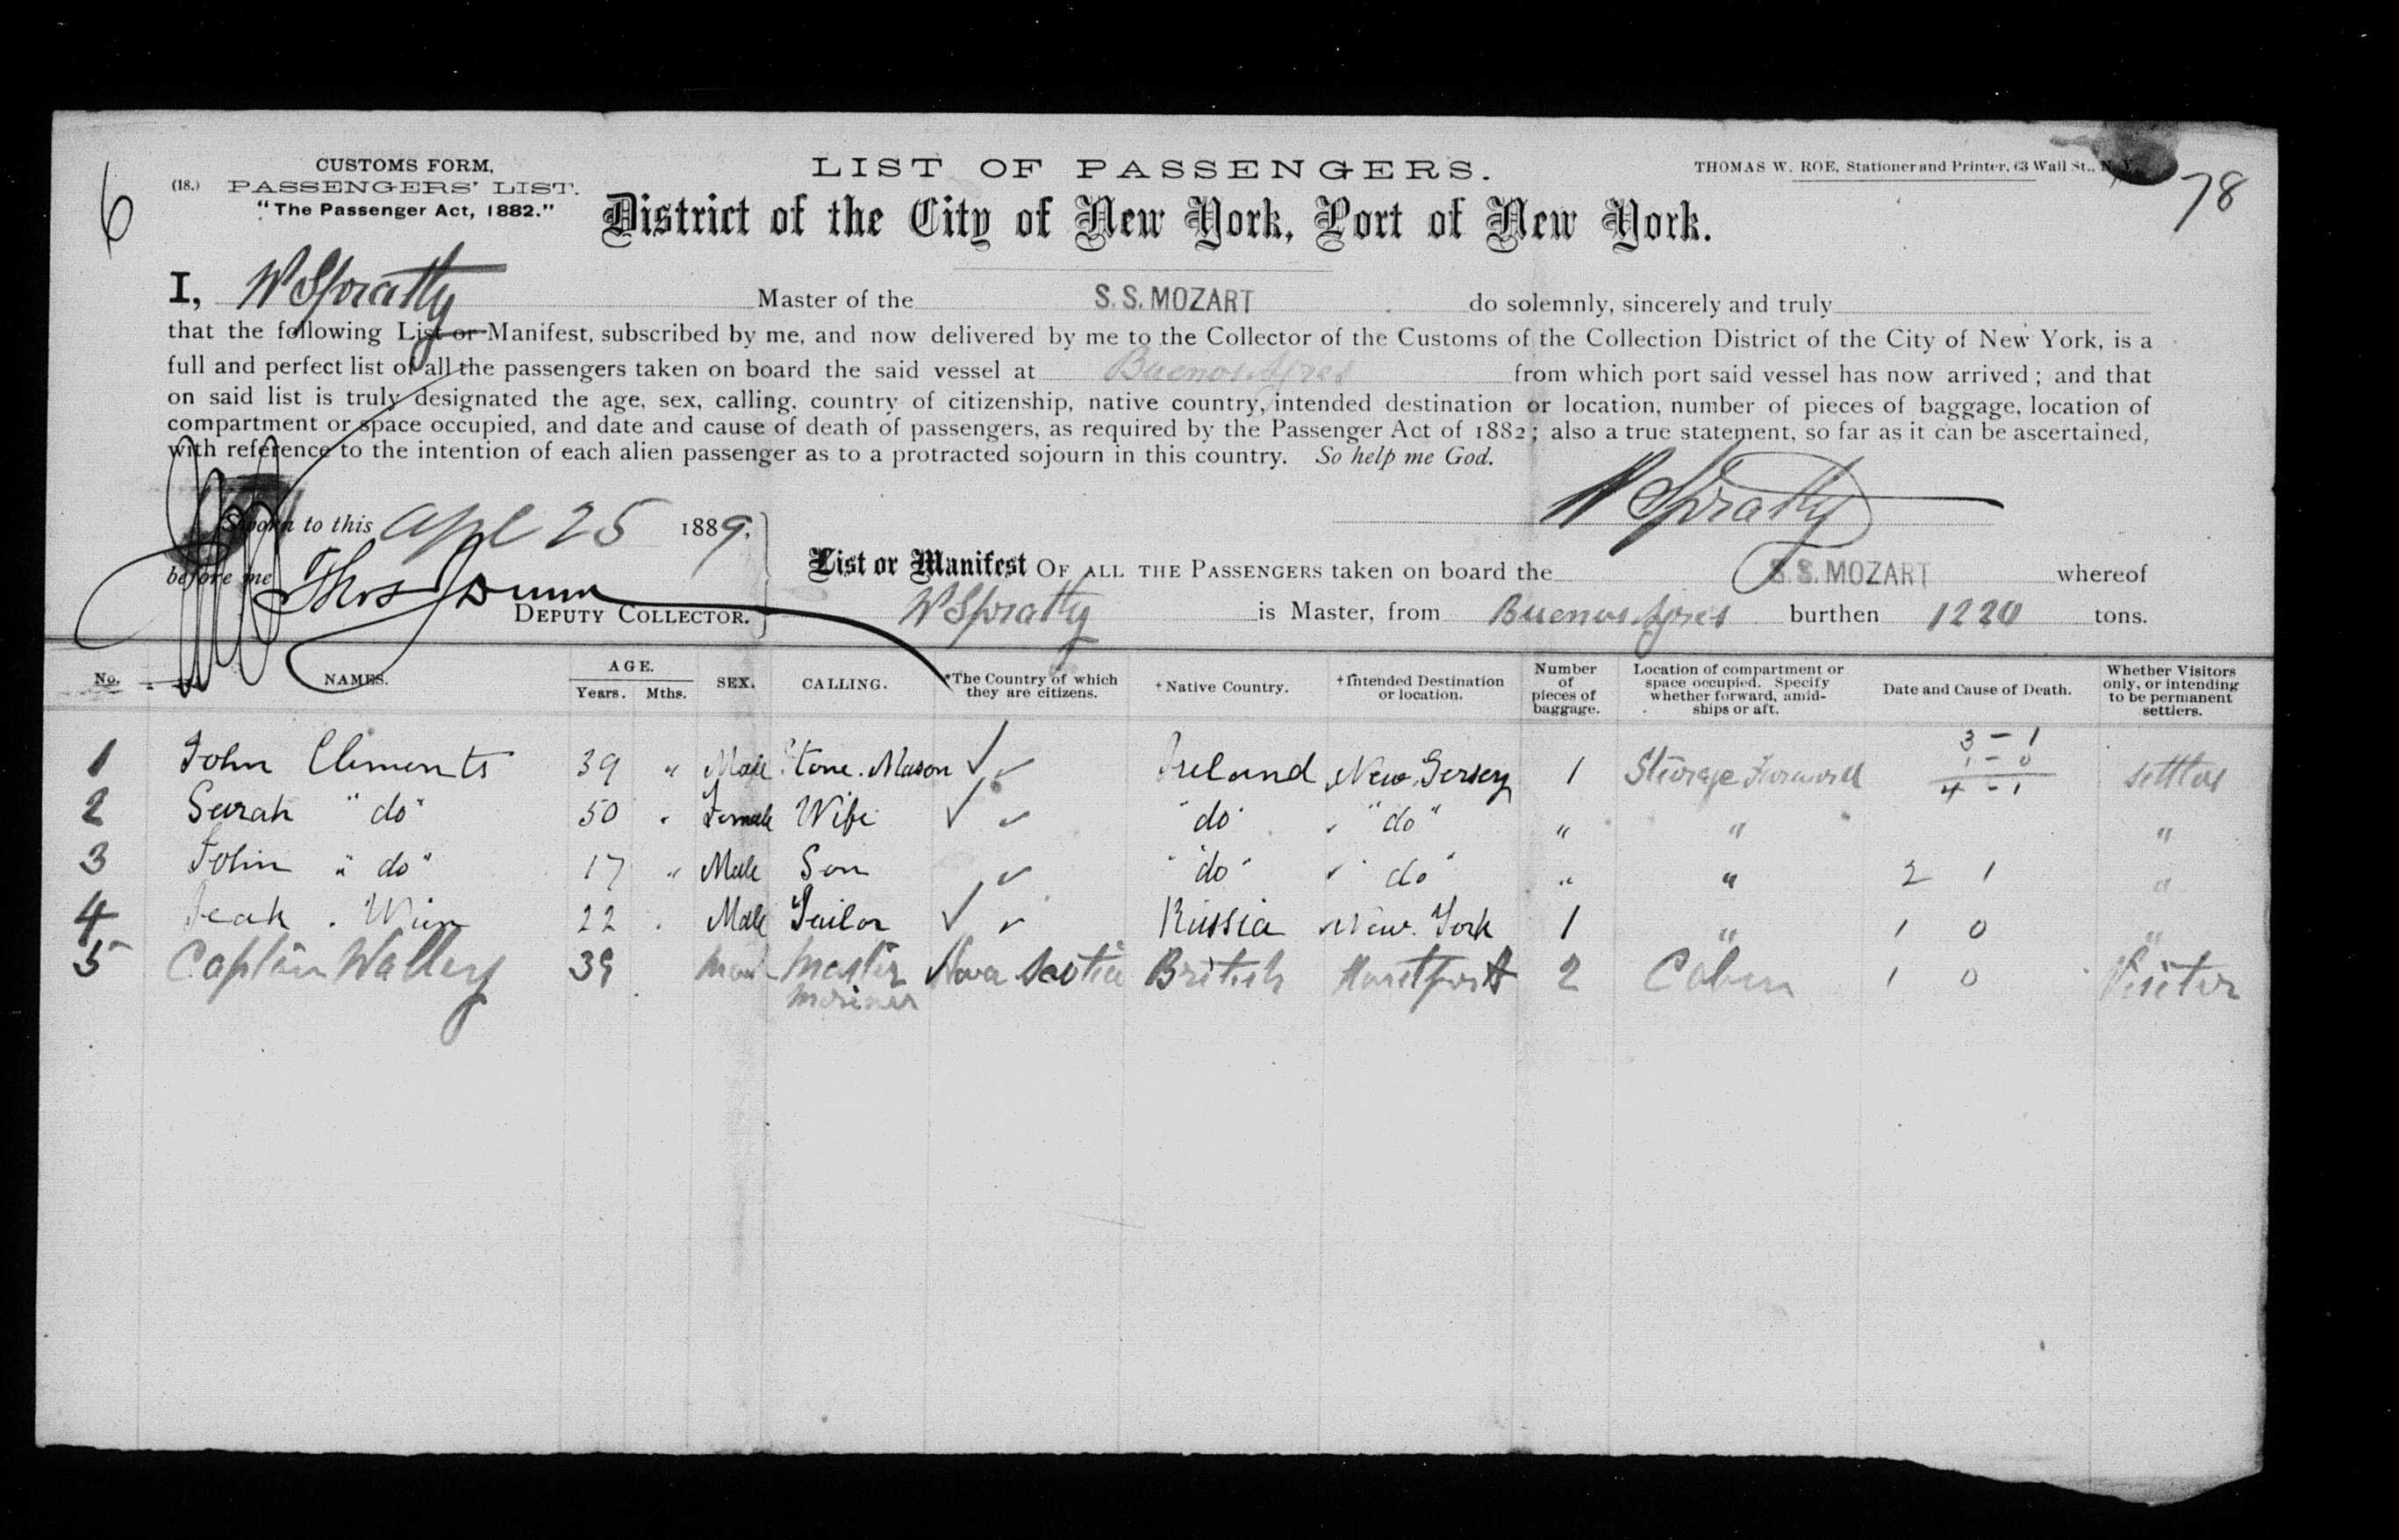 6
CUSTOMS FORM,
(18.) PASSENGERS' LIST.
"The Passenger Act, 1882."
LIST OF PASSENGERS.
THOMAS W. ROE, Stationer and Printer, 63 Wall St., N. Y.
78
District of the City of New York, Port of New York.
I, W Spratly Master of the S. S. MOZART do solemnly, sincerely and truly
that the following List or Manifest, subscribed by me, and now delivered by me to the Collector of the Customs of the Collection District of the City of New York, is a
full and perfect list of all the passengers taken on board the said vessel at Buenos Ayres from which port said vessel has now arrived; and that
on said list is truly designated the age, sex, calling, country of citizenship, native country, intended destination or location, number of pieces of baggage, location of
compartment or space occupied, and date and cause of death of passengers, as required by the Passenger Act of 1882; also a true statement, so far as it can be ascertained,
with reference to the intention of each alien passenger as to a protracted sojourn in this country. So help me God.
W Spratly
Sworn to this Apl 25 1889.
before me Thos Dunn
DEPUTY COLLECTOR.
List or Manifest OF ALL THE PASSENGERS taken on board the S. S. MOZART whereof
W Spratly is Master, from Buenos Ayres burthen 1220 tons.
No. NAMES. AGE. Years. Mths. SEX. CALLING. *The Country of which they are citizens. †Native Country. †Intended Destination or location. Number of pieces of baggage. Location of compartment or space occupied. Specify whether forward, amidships or aft. Date and Cause of Death. Whether Visitors only, or intending to be permanent settlers.
3 - 1
1 - 0
4 - 1
1 John Clements 39 " Male Stone. Mason ✓ ✓ Ireland New Jersey 1 Steerage Forward settlers
2 Sarah " do " 50 " Female Wife ✓ ✓ " do " " do " " " "
3 John " do " 17 " Male Son ✓ " do " " do " " " 2 1 "
4 22 Male Tailor ✓ ✓ Russia New York 1 " 1 0 "
5 Captain 39 Master Mariner Nova Scotia British 2 Cabin 1 0 Visitor